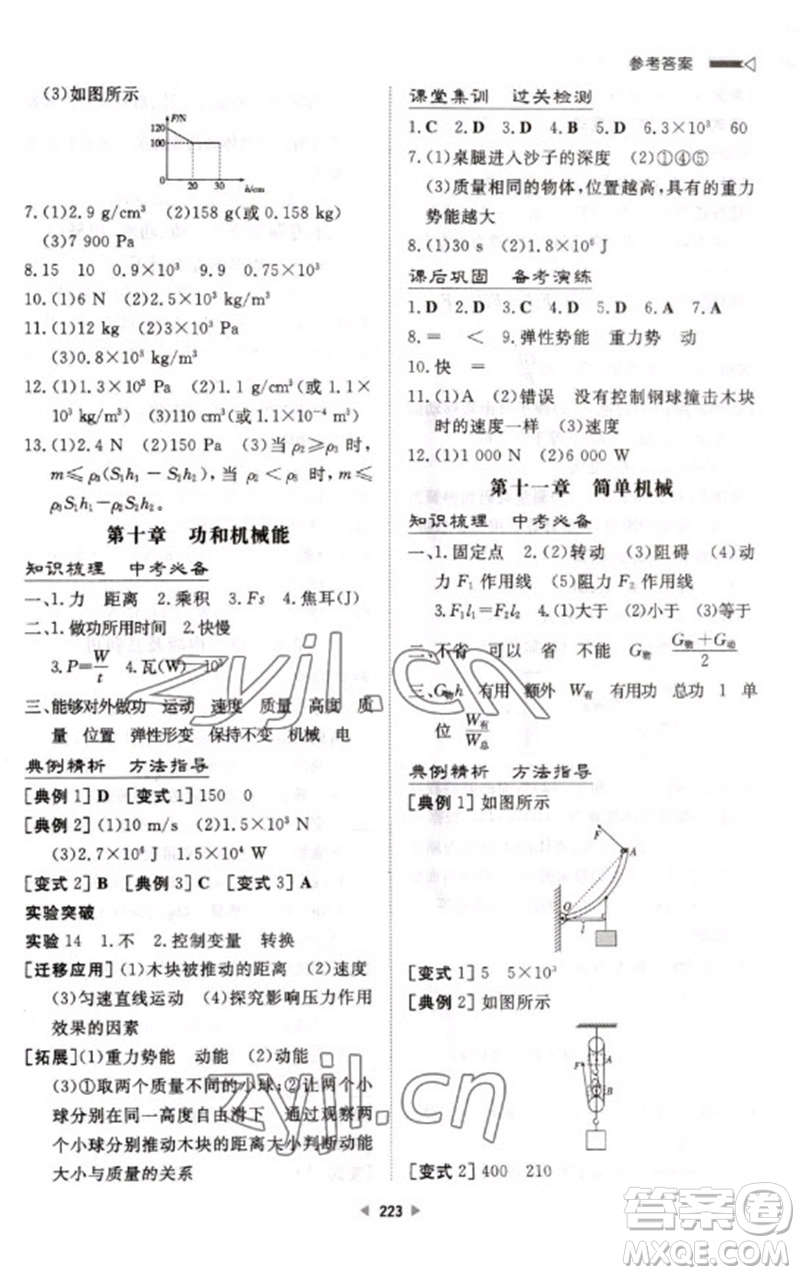 参考答案
(3)如图所示
F/N
120
100
0
20
30
h/cm
7.(1)2.9 g/cm³ (2)158 g(或 0.158 kg)
(3)7 900 Pa
8.15 10 0.9×10³ 9.9 0.75×10³
10.(1)6 N (2)2.5×10³ kg/m³
11.(1)1×10³ Pa (2)2×10³ Pa
(3)0.8×10³ kg/m³
12.(1)1.3×10³ Pa (2)1.3 g/cm³(或 1.3×
10³ kg/m³) (3)110 cm³(或 1.1×10⁻⁴ m³)
13.(1)2.4 N (2)150 Pa (3)当 ρ₂≥ρ₃ 时,
m≤ρ₃(S₁h₁-S₂h₂);当 ρ₂<ρ₃ 时,m≤
ρ₃S₁h₁-ρ₂S₂h₂。
第十章 功和机械能
知识梳理 中考必备
一、1.力 距离 2.乘积 3.Fs 4.焦耳(J)
二、1.做功所用时间 2.快慢
3.P=W/t 4.瓦(W) 10³
三、能够对外做功 运动 速度 质量 高度 质
量 位置 弹性形变 保持不变 机械 电
典例精析 方法指导
[典例1]D [变式1]150 0
[典例2](1)10 m/s (2)1.5×10³ N
(3)2.7×10⁶ J 1.5×10⁴ W
[变式2]B [典例3]C [变式3]A
实验突破
实验14 1.不 2.控制变量 转换
[迁移应用](1)木块被推动的距离 (2)速度
(3)匀速直线运动 (4)探究影响压力作用
效果的因素
[拓展](1)重力势能 动能 (2)动能
(3)①取两个质量不同的小球;②让两个小
球分别在同一高度自由滑下 通过观察两
个小球分别推动木块的距离大小判断动能
大小与质量的关系
课堂集训 过关检测
1.C 2.D 3.D 4.B 5.D 6.3×10³ 60
7.(1)桌腿进入沙子的深度 (2)①④⑤
(3)质量相同的物体,位置越高,具有的重力
势能越大
8.(1)30 s (2)1.8×10⁶ J
课后巩固 备考演练
1.D 2.D 3.C 4.D 5.D 6.A 7.A
8.= < 9.弹性势能 重力势 动
10.快 =
11.(1)A (2)错误 没有控制钢球撞击木块
时的速度一样 (3)速度
12.(1)1 000 N (2)6 000 W
第十一章 简单机械
知识梳理 中考必备
一、1.固定点 2.(2)转动 (3)阻碍 (4)动
力 F₁ 作用线 (5)阻力 F₂ 作用线
3.F₁l₁=F₂l₂ (1)大于 (2)小于 (3)等于
二、不省 可以 省力 不能 G物 (G物+G动)/2
三、G物h 有用 额外 W有 有用功 总功 1 单
位 W有/W总
典例精析 方法指导
[典例1]如图所示
F
A
O
l
[变式1]5 5×10³
[典例2]如图所示
F
A
[变式2]400 210
223
zyjl.cn
zyjl.cn
答案圈
MXQE.COM